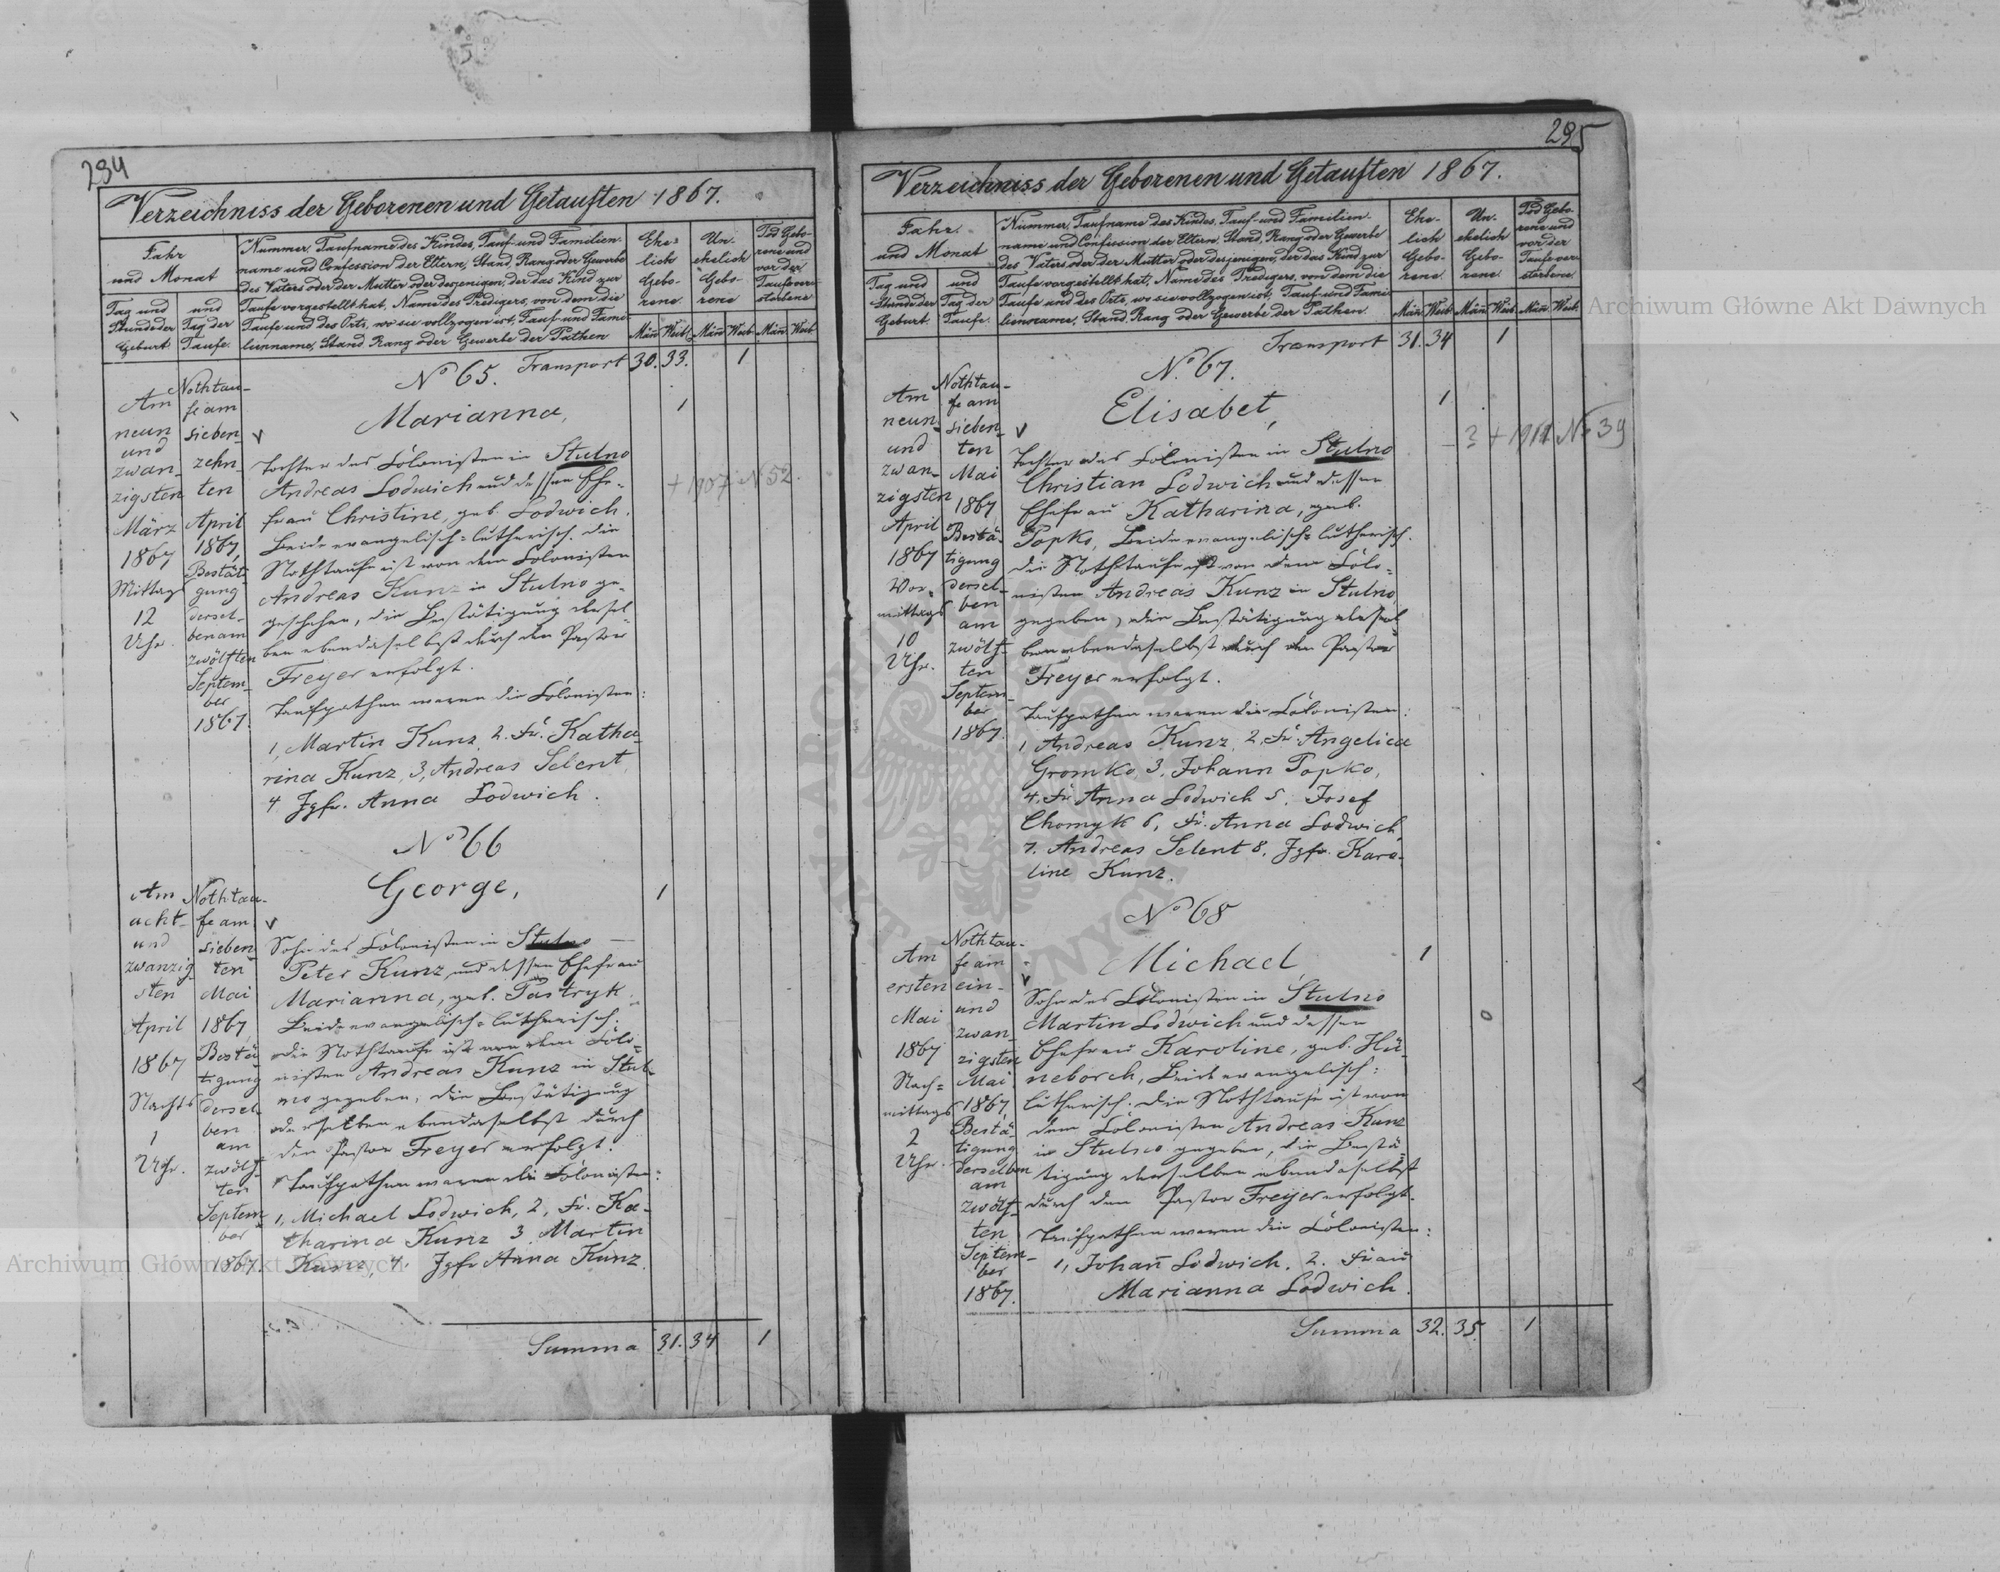 234
Verzeichniss der Geborenen und Getauften 1867.
Jahr
und Monat
Tag und
Stunde der
Geburt.
und
Tag der
Taufe.
Nummer, Taufname des Kindes, Tauf- und Familien-
name und Confession der Eltern, Stand, Rang oder Gewerbe
des Vaters oder der Mutter oder desjenigen, der das Kind zur
Taufe vorgestellt hat, Name des Predigers, von dem die
Taufe und des Orts, wo sie vollzogen ist, Tauf- und Fami-
lienname, Stand, Rang oder Gewerbe der Pathen
Ehe-
lich
Gebo-
rene
Un-
ehelich
Gebo-
rene
Tod Gebo-
rene und
vor der
Taufe ver-
storbene
Män. Weib. Män. Weib. Män. Weib.
Transport 30. 33. 1
No 65.
Am
neun
und
zwan-
zigsten
März
1867
Mittags
12
Uhr.
Nothtau-
fe am
sieben-
zehn-
ten
April
1867,
Bestäti-
gung
dersel-
ben am
zwölften
Septem-
ber
1867.
Marianna,
1
Tochter des Colonisten in Stulno
Andreas Lodwich und dessen Ehe-
frau Christine, geb. Lodwich.
Beide evangelisch-lutherisch. Die
Nothtaufe ist von dem Colonisten
Andreas Kunz in Stulno ge-
geschehen, die Bestätigung dersel-
ben ebendaselbst durch den Pastor
Freyer erfolgt.
Taufpathen waren die Colonisten:
1, Martin Kunz, 2. Fr. Katha-
rina Kunz, 3, Andreas Selent,
4 Jgfr. Anna Lodwich.
+ 1907 N 52.
No 66
Am
acht-
und
zwanzig-
sten
April
1867
Nachts
1
Uhr.
Nothtau-
fe am
sieben-
ten
Mai
1867
Bestä-
tigung
dersel-
ben
am
zwölf-
ten
Septem-
ber
1867.
George,
1
Sohn des Colonisten in Stulno
Peter Kunz, und dessen Ehefrau
Marianna, geb. Pastryk.
Beide evangelisch-lutherisch.
die Nothtaufe ist von dem Colo-
nisten Andreas Kunz in Stul-
no gegeben, die Bestätigung
derselben ebendaselbst durch
den Pastor Freyer erfolgt.
Taufpathen waren die Colonisten:
1, Michael Lodwich, 2, Fr. Ka-
tharina Kunz 3, Martin
Kunz, 4. Jgfr Anna Kunz.
Summa 31. 34 1
295
Verzeichniss der Geborenen und Getauften 1867.
Jahr
und Monat
Tag und
Stunde der
Geburt.
und
Tag der
Taufe.
Nummer, Taufname des Kindes, Tauf- und Familien-
name und Confession der Eltern, Stand, Rang oder Gewerbe
des Vaters oder der Mutter oder desjenigen, der das Kind zur
Taufe vorgestellt hat, Name des Predigers, von dem die
Taufe und des Orts, wo sie vollzogen ist, Tauf- und Fami-
lienname, Stand, Rang oder Gewerbe der Pathen.
Ehe-
lich
Gebo-
rene
Un-
ehelich
Gebo-
rene
Tod Gebo-
rene und
vor der
Taufe ver-
storbene
Män. Weib. Män. Weib. Män. Weib.
Transport 31. 34 1
No. 67.
Am
neun-
und
zwan-
zigsten
April
1867
Vor-
mittags
10
Uhr.
Nothtau-
fe am
sieben-
ten
Mai
1867
Bestä-
tigung
dersel-
ben
am
zwölf-
ten
Septem-
ber
1867.
Elisabet,
1
Tochter des Colonisten in Stulno
Christian Lodwich und dessen
Ehefrau Katharina, geb.
Popko, Beide evangelisch-lutherisch.
die Nothtaufe ist von dem Colo-
nisten Andreas Kunz in Stulno
gegeben, die Bestätigung dersel-
ben ebendaselbst durch den Pastor
Freyer erfolgt.
Taufpathen waren die Colonisten:
1 Andreas Kunz, 2, Fr. Angelica
Gromko, 3, Johann Popko,
4, Fr Anna Lodwich 5, Josef
Chomyk 6, Fr. Anna Lodwich,
7. Andreas Selent 8, Jgfr. Karo-
line Kunz.
No 39
No 68
Am
ersten
Mai
1867
Nach-
mittags
2
Uhr.
Nothtau-
fe am
ein-
und
zwan-
zigsten
Mai
1867,
Bestä-
tigung
derselben
am
zwölf-
ten
Septem-
ber
1867.
Michael,
1
Sohn des Colonisten in Stulno
Martin Lodwich und dessen
Ehefrau Karoline, geb. Hü-
neborch, Beide evangelisch-
lutherisch. die Nothtaufe ist von
dem Colonisten Andreas Kunz
in Stulno gegeben, die Bestä-
tigung derselben ebendaselbst
durch den Pastor Freyer erfolgt.
Taufpathen waren die Colonisten:
1, Johann Lodwich. 2. Frau
Marianna Lodwich.
Summa 32. 35. 1
Archiwum Główne Akt Dawnych
Archiwum Główne Akt Dawnych